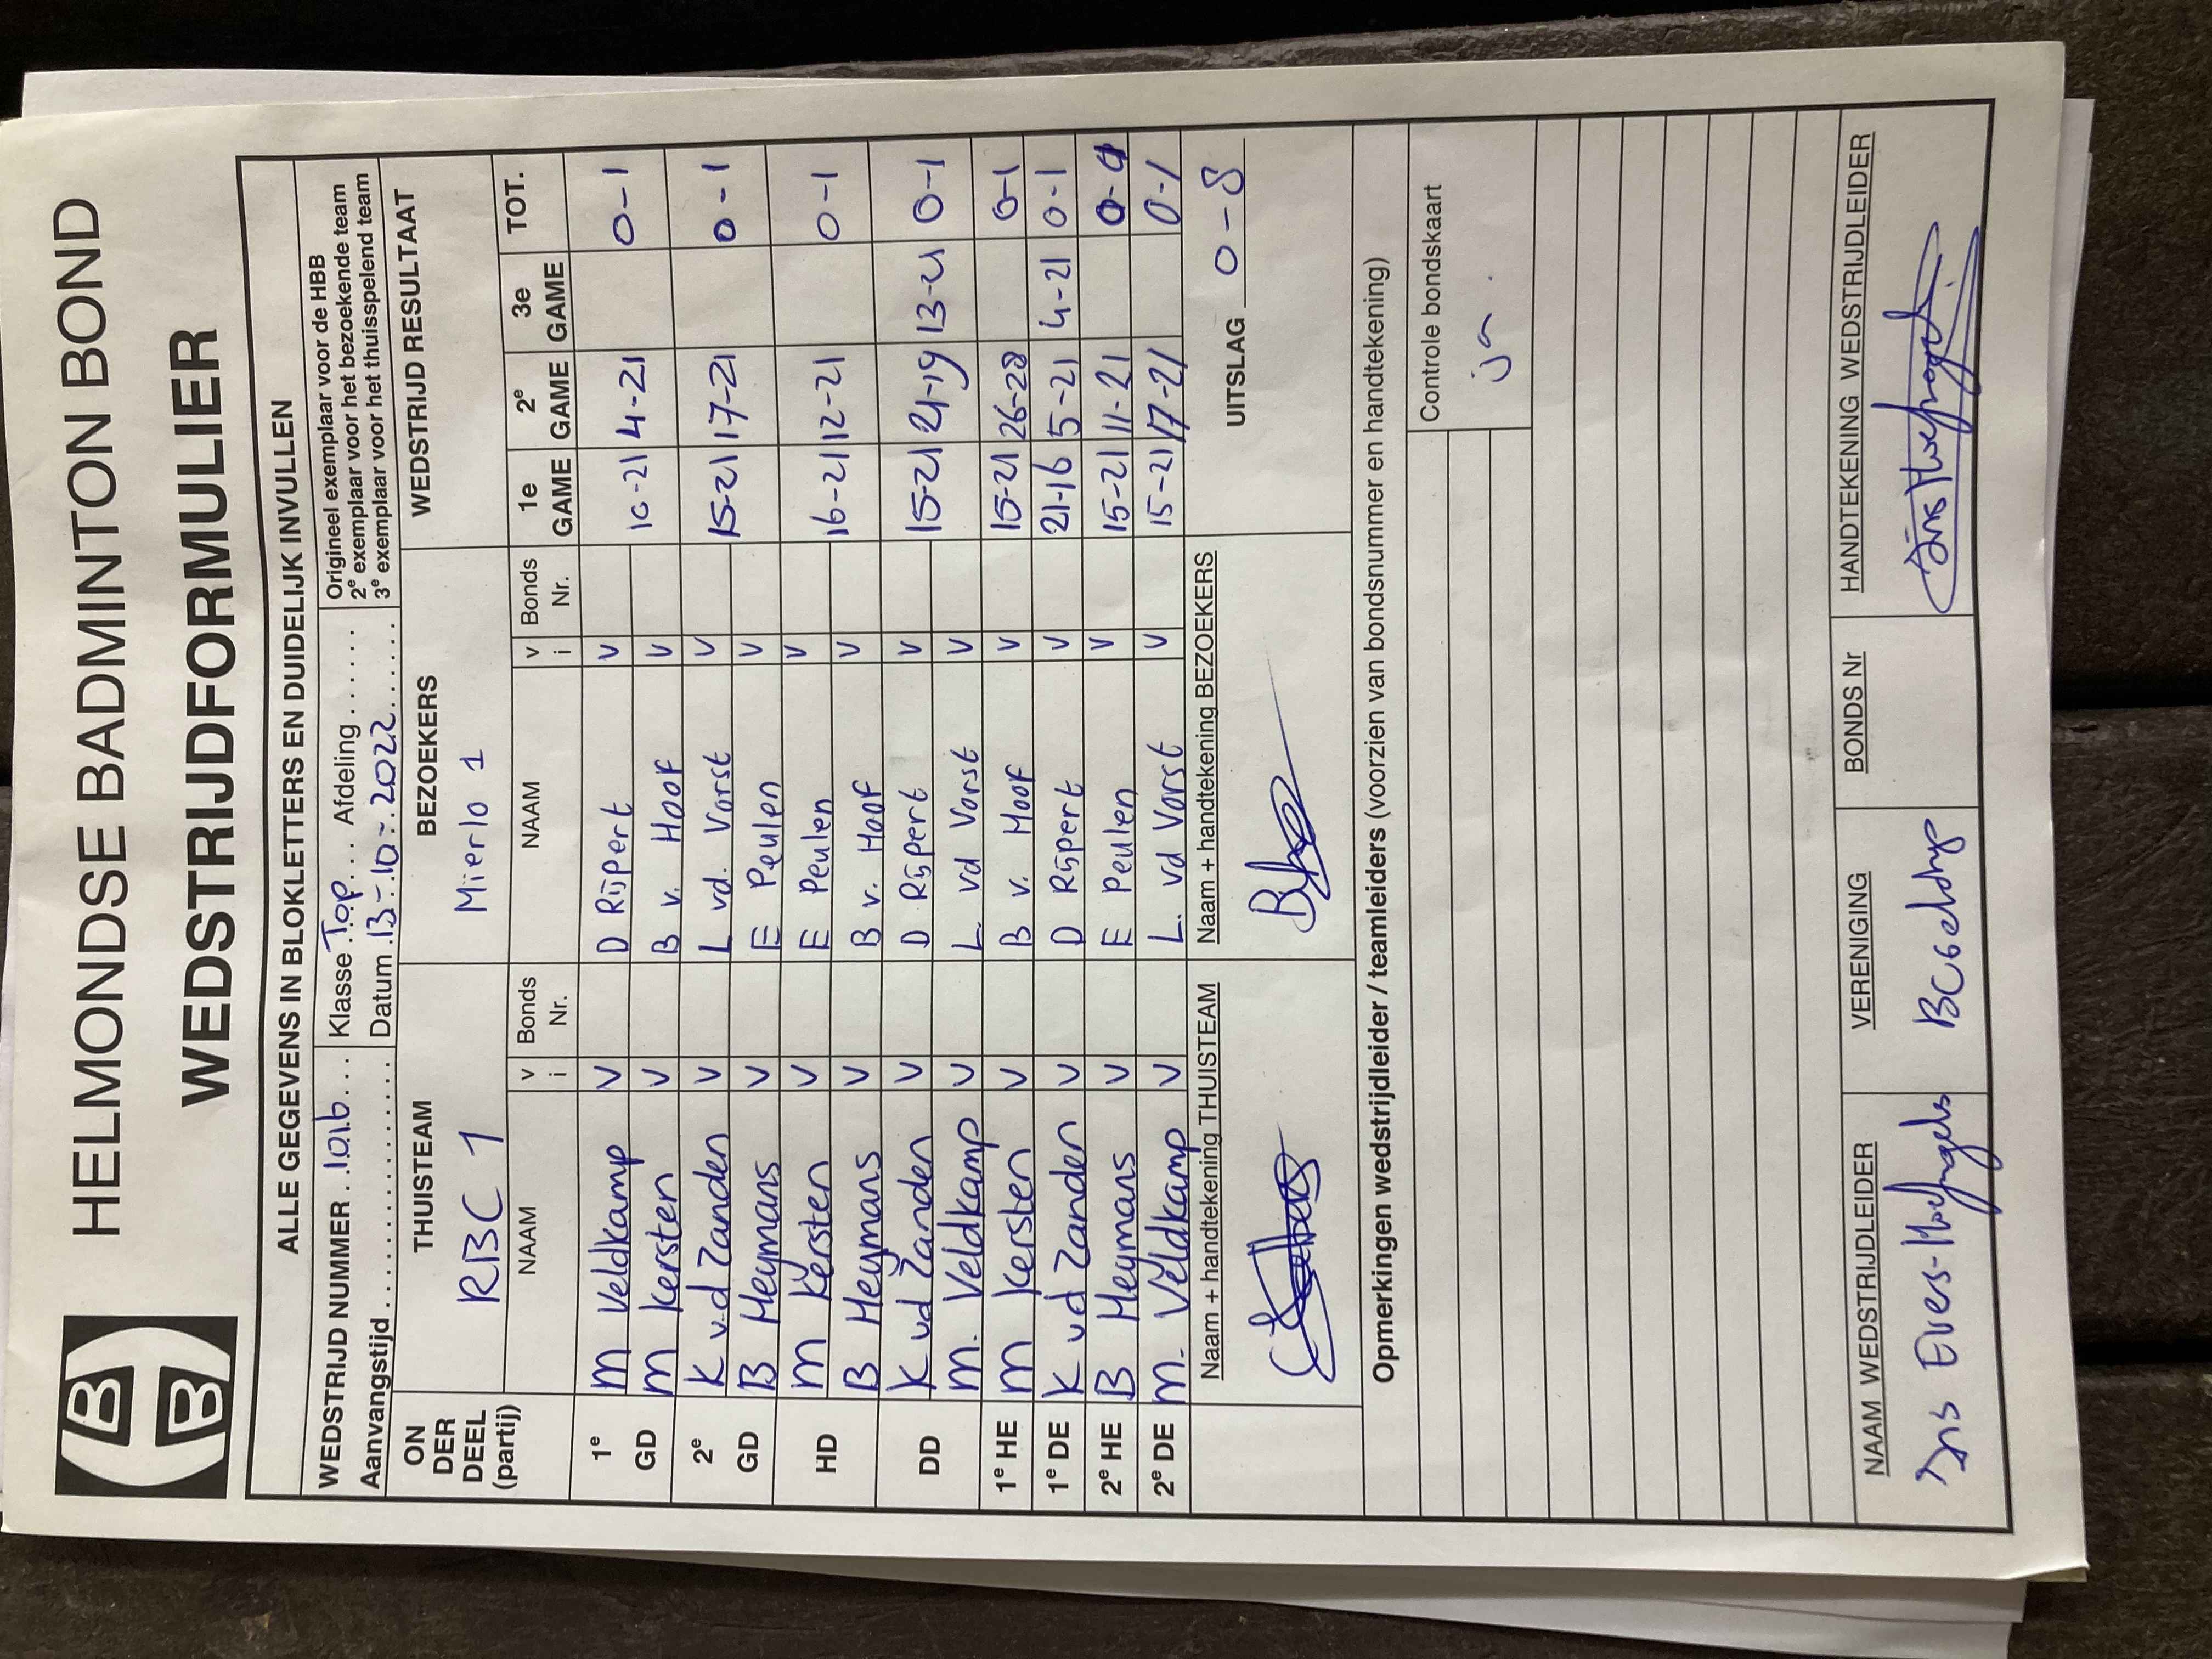 HELMONDSE BADMINTON BOND
WEDSTRIJDFORMULIER
ALLE GEGEVENS IN BLOKLETTERS EN DUIDELIJK INVULLEN
WEDSTRIJD NUMMER .101b...
Aanvangstijd
Klasse Top... Afdeling ......
Datum 13-10-2022
Origineel exemplaar voor de HBB
2e exemplaar voor het bezoekende team
3e exemplaar voor het thuisspelend team
ON DER DEEL (partij) THUISTEAM BEZOEKERS WEDSTRIJD RESULTAAT
RBC 1 Mierlo 1
NAAM v i Bonds Nr. NAAM v i Bonds Nr. 1e GAME 2e GAME 3e GAME TOT.
1e GD M Veldkamp V D Rijpert V 10-21 4-21 0-1
M Kersten V B v. Hoof V
2e GD K v.d Zanden V L vd. Vorst V 15-21 17-21 0-1
B Heymans V E Peulen V
HD M Kersten V E Peulen V 16-21 12-21 0-1
B Heymans V B v. Hoof V
DD K vd Zanden V D Rijpert V 15-21 21-19 13-21 0-1
M. Veldkamp V L. vd Vorst V
1e HE M Kersten V B v. Hoof V 15-21 26-28 0-1
1e DE K vd Zanden V D Rijpert V 21-16 5-21 4-21 0-1
2e HE B Heymans V E Peulen V 15-21 11-21
2e DE M. Veldkamp V L. vd Vorst V 15-21 17-21 0-1
Naam + handtekening THUISTEAM Naam + handtekening BEZOEKERS UITSLAG 0-8
Opmerkingen wedstrijdleider / teamleiders (voorzien van bondsnummer en handtekening)
Controle bondskaart
ja.
NAAM WEDSTRIJDLEIDER VERENIGING BONDS Nr HANDTEKENING WEDSTRIJDLEIDER
BC Geldrop